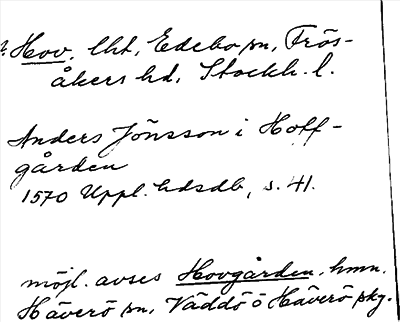 Hov, lht, Edebo sn, Frös-
åkers hd, Stockh. l.
Anders Jönsson i Hoff-
gården
1570 Uppl. hdsdb, s. 41.
möjl. avses Hovgården, hmn.
Häverö sn, Väddö ö Häverö skg.